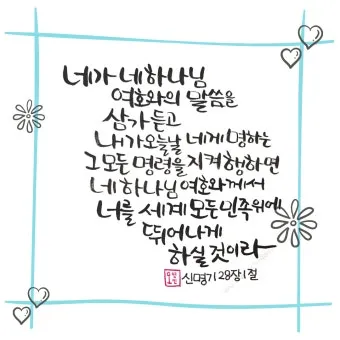 네가 네 하나님
여호와의 말씀을
삼가 듣고
내가 오늘날 네게 명하는
그 모든 명령을 지켜 행하면
네 하나님 여호와께서
너를 세계 모든 민족 위에
뛰어나게
하실 것이라
신명기 28장 1절